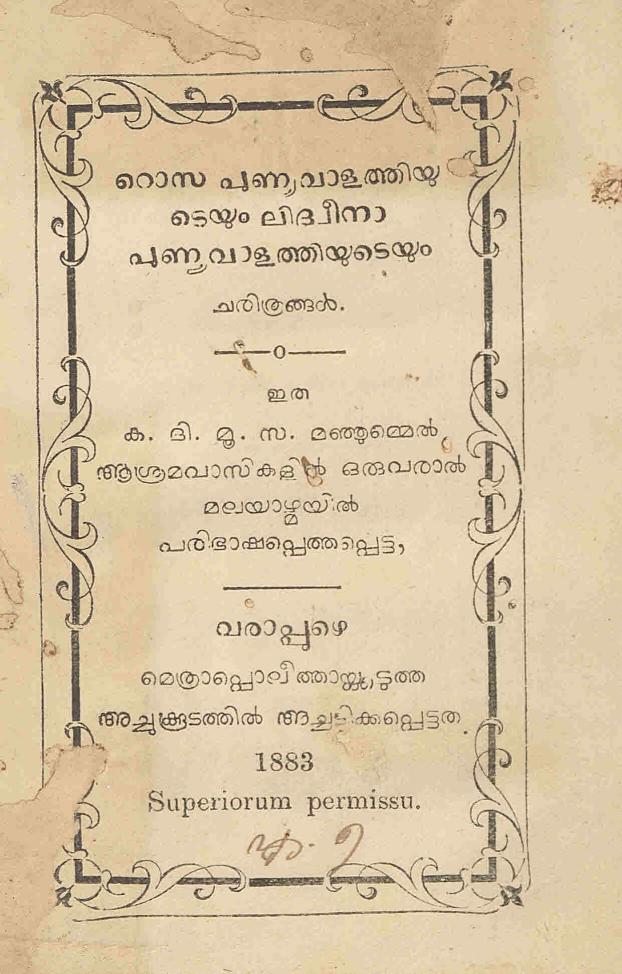 റൊസ പുണ്യവാളത്തിയു
ടെയും ലിദ്വീനാ
പുണ്യവാളത്തിയുടെയും
ചരിത്രങ്ങൾ.
ഇത
ക. ദി. മൂ. സ. മഞ്ഞുമ്മെൽ,
ആശ്രമവാസികളിൽ ഒരുവരാൽ
മലയാഴ്മയിൽ
പരിഭാഷപ്പെത്തപ്പെട്ട,
വരാപ്പുഴെ
മെത്രാപ്പൊലീത്തായ്ക്കടുത്ത
അച്ചുക്കൂടത്തിൽ അച്ചടിക്കപ്പെട്ടത.
1883
Superiorum permissu.